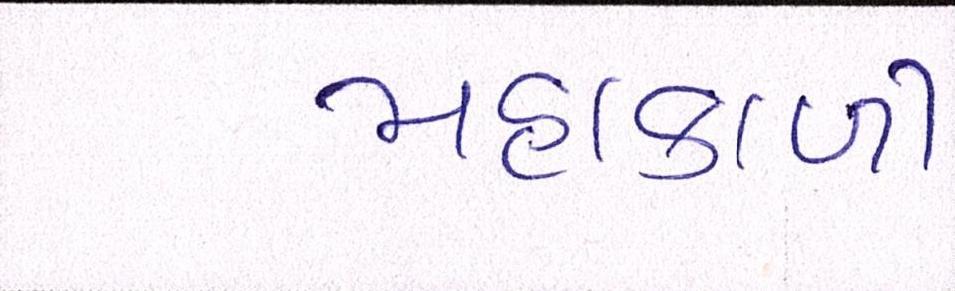 મહાકાળી